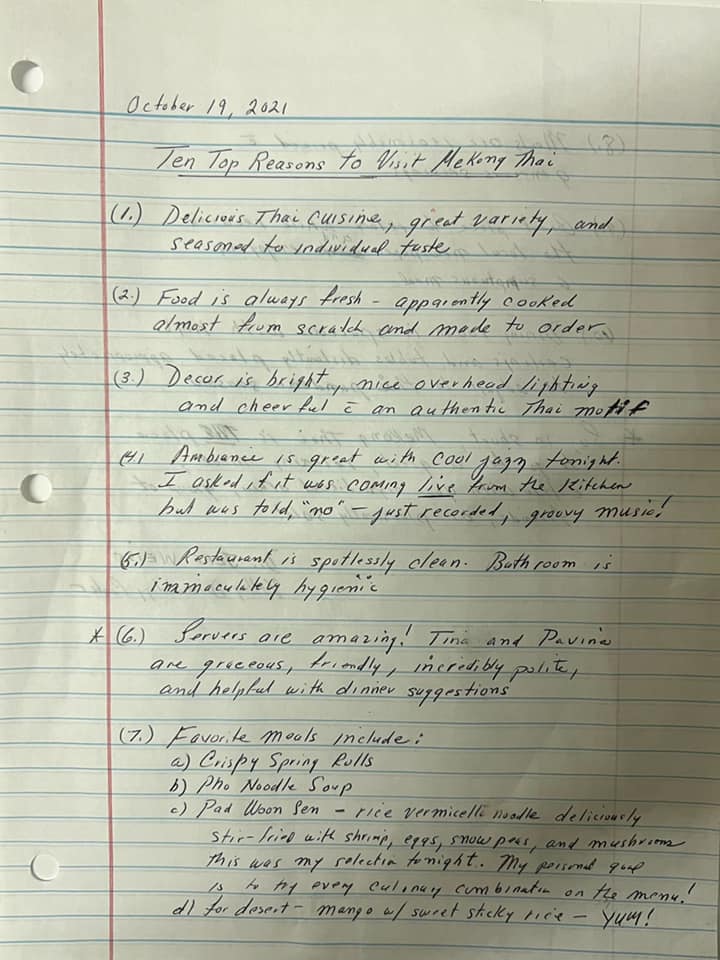 October 19, 2021
Ten Top Reasons to Visit Mekong Thai
(1.) Delicious Thai cuisine, great variety, and
seasoned to individual taste
(2.) Food is always fresh - apparently cooked
almost from scratch and made to order.
(3.) Decor is bright, nice overhead lighting
and cheerful c̄ an authentic Thai motif
(4) Ambiance is great with cool jazz tonight.
I asked if it was coming live from the kitchen
but was told, "no" - just recorded, groovy music!
(5.) Restaurant is spotlessly clean. Bathroom is
immaculately hygienic
* (6.) Servers are amazing! Tina and Pavina
are graceous, friendly, incredibly polite,
and helpful with dinner suggestions
(7.) Favorite meals include:
a) Crispy Spring Rolls
b) Pho Noodle Soup
c) Pad Woon Sen - rice vermicelli noodle deliciously
stir-fried with shrimp, eggs, snow peas, and mushrooms
This was my selection tonight. My personal goal
is to try every culinary combination on the menu!
d) for desert - mango w/ sweet sticky rice - Yum!